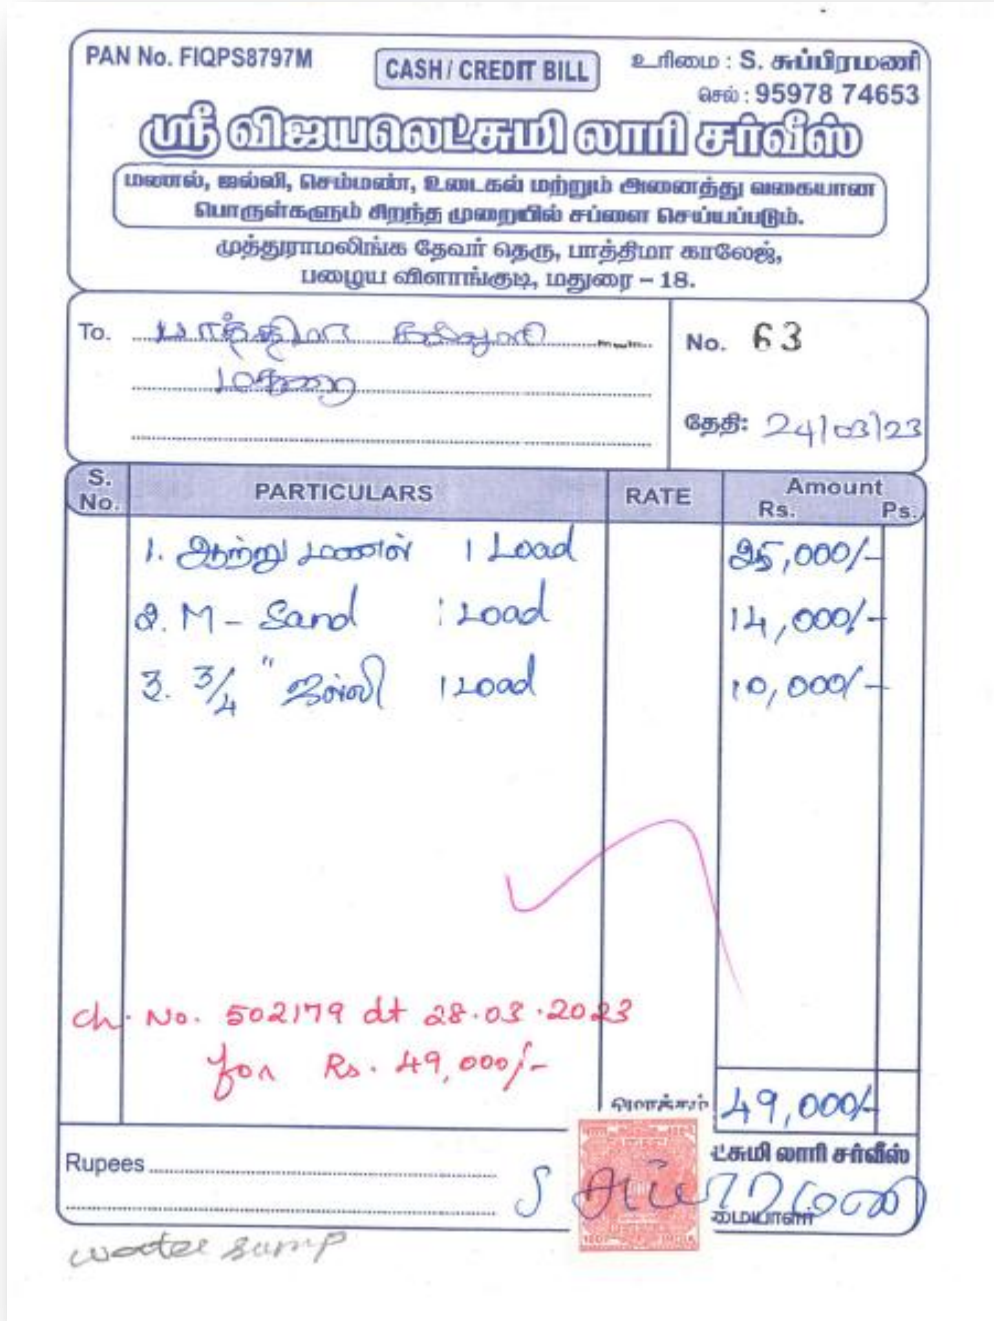 PAN No. FIQPS8797M
CASH / CREDIT BILL
உரிமை : S. சுப்பிரமணி
செல் : 95978 74653
ஸ்ரீ விஜயலெட்சுமி லாரி சர்வீஸ்
மணல், ஜல்லி, செம்மண், உடைகல் மற்றும் அனைத்து வகையான
பொருள்களும் சிறந்த முறையில் சப்ளை செய்யப்படும்.
முத்துராமலிங்க தேவர் தெரு, பாத்திமா காலேஜ்,
பழைய விளாங்குடி, மதுரை – 18.
To. பாத்திமா கல்லூரி
மதுரை
No. 63
தேதி: 24/03/23
S. No. PARTICULARS RATE Amount Rs. Ps.
1. ஆற்று மணல் 1 Load 25,000/-
2. M - Sand 1 Load 14,000/-
3. 3/4 " ஜல்லி 1 Load 10,000/-
Ch. No. 502179 dt 28.03.2023
for Rs. 49,000/-
மொத்தம் 49,000/-
Rupees
ட்சுமி லாரி சர்வீஸ்
S சுப்பிரமணி
மையாளர்
INDIA
water sump